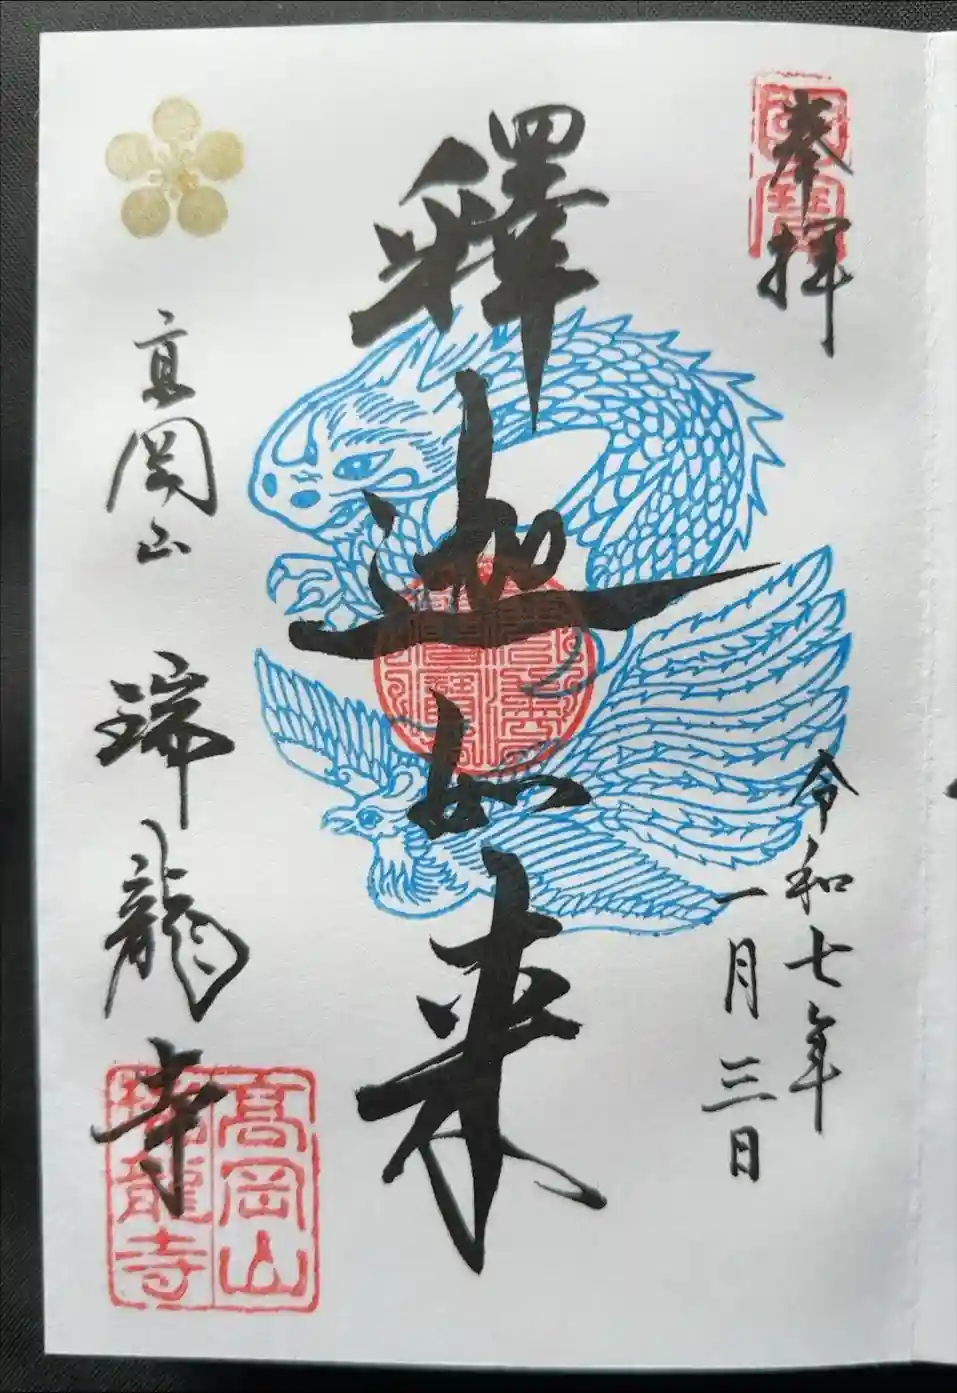 奉拝
令和七年
一月三日
釋迦如来
高岡山 瑞龍寺
国宝
高岡山
瑞龍寺